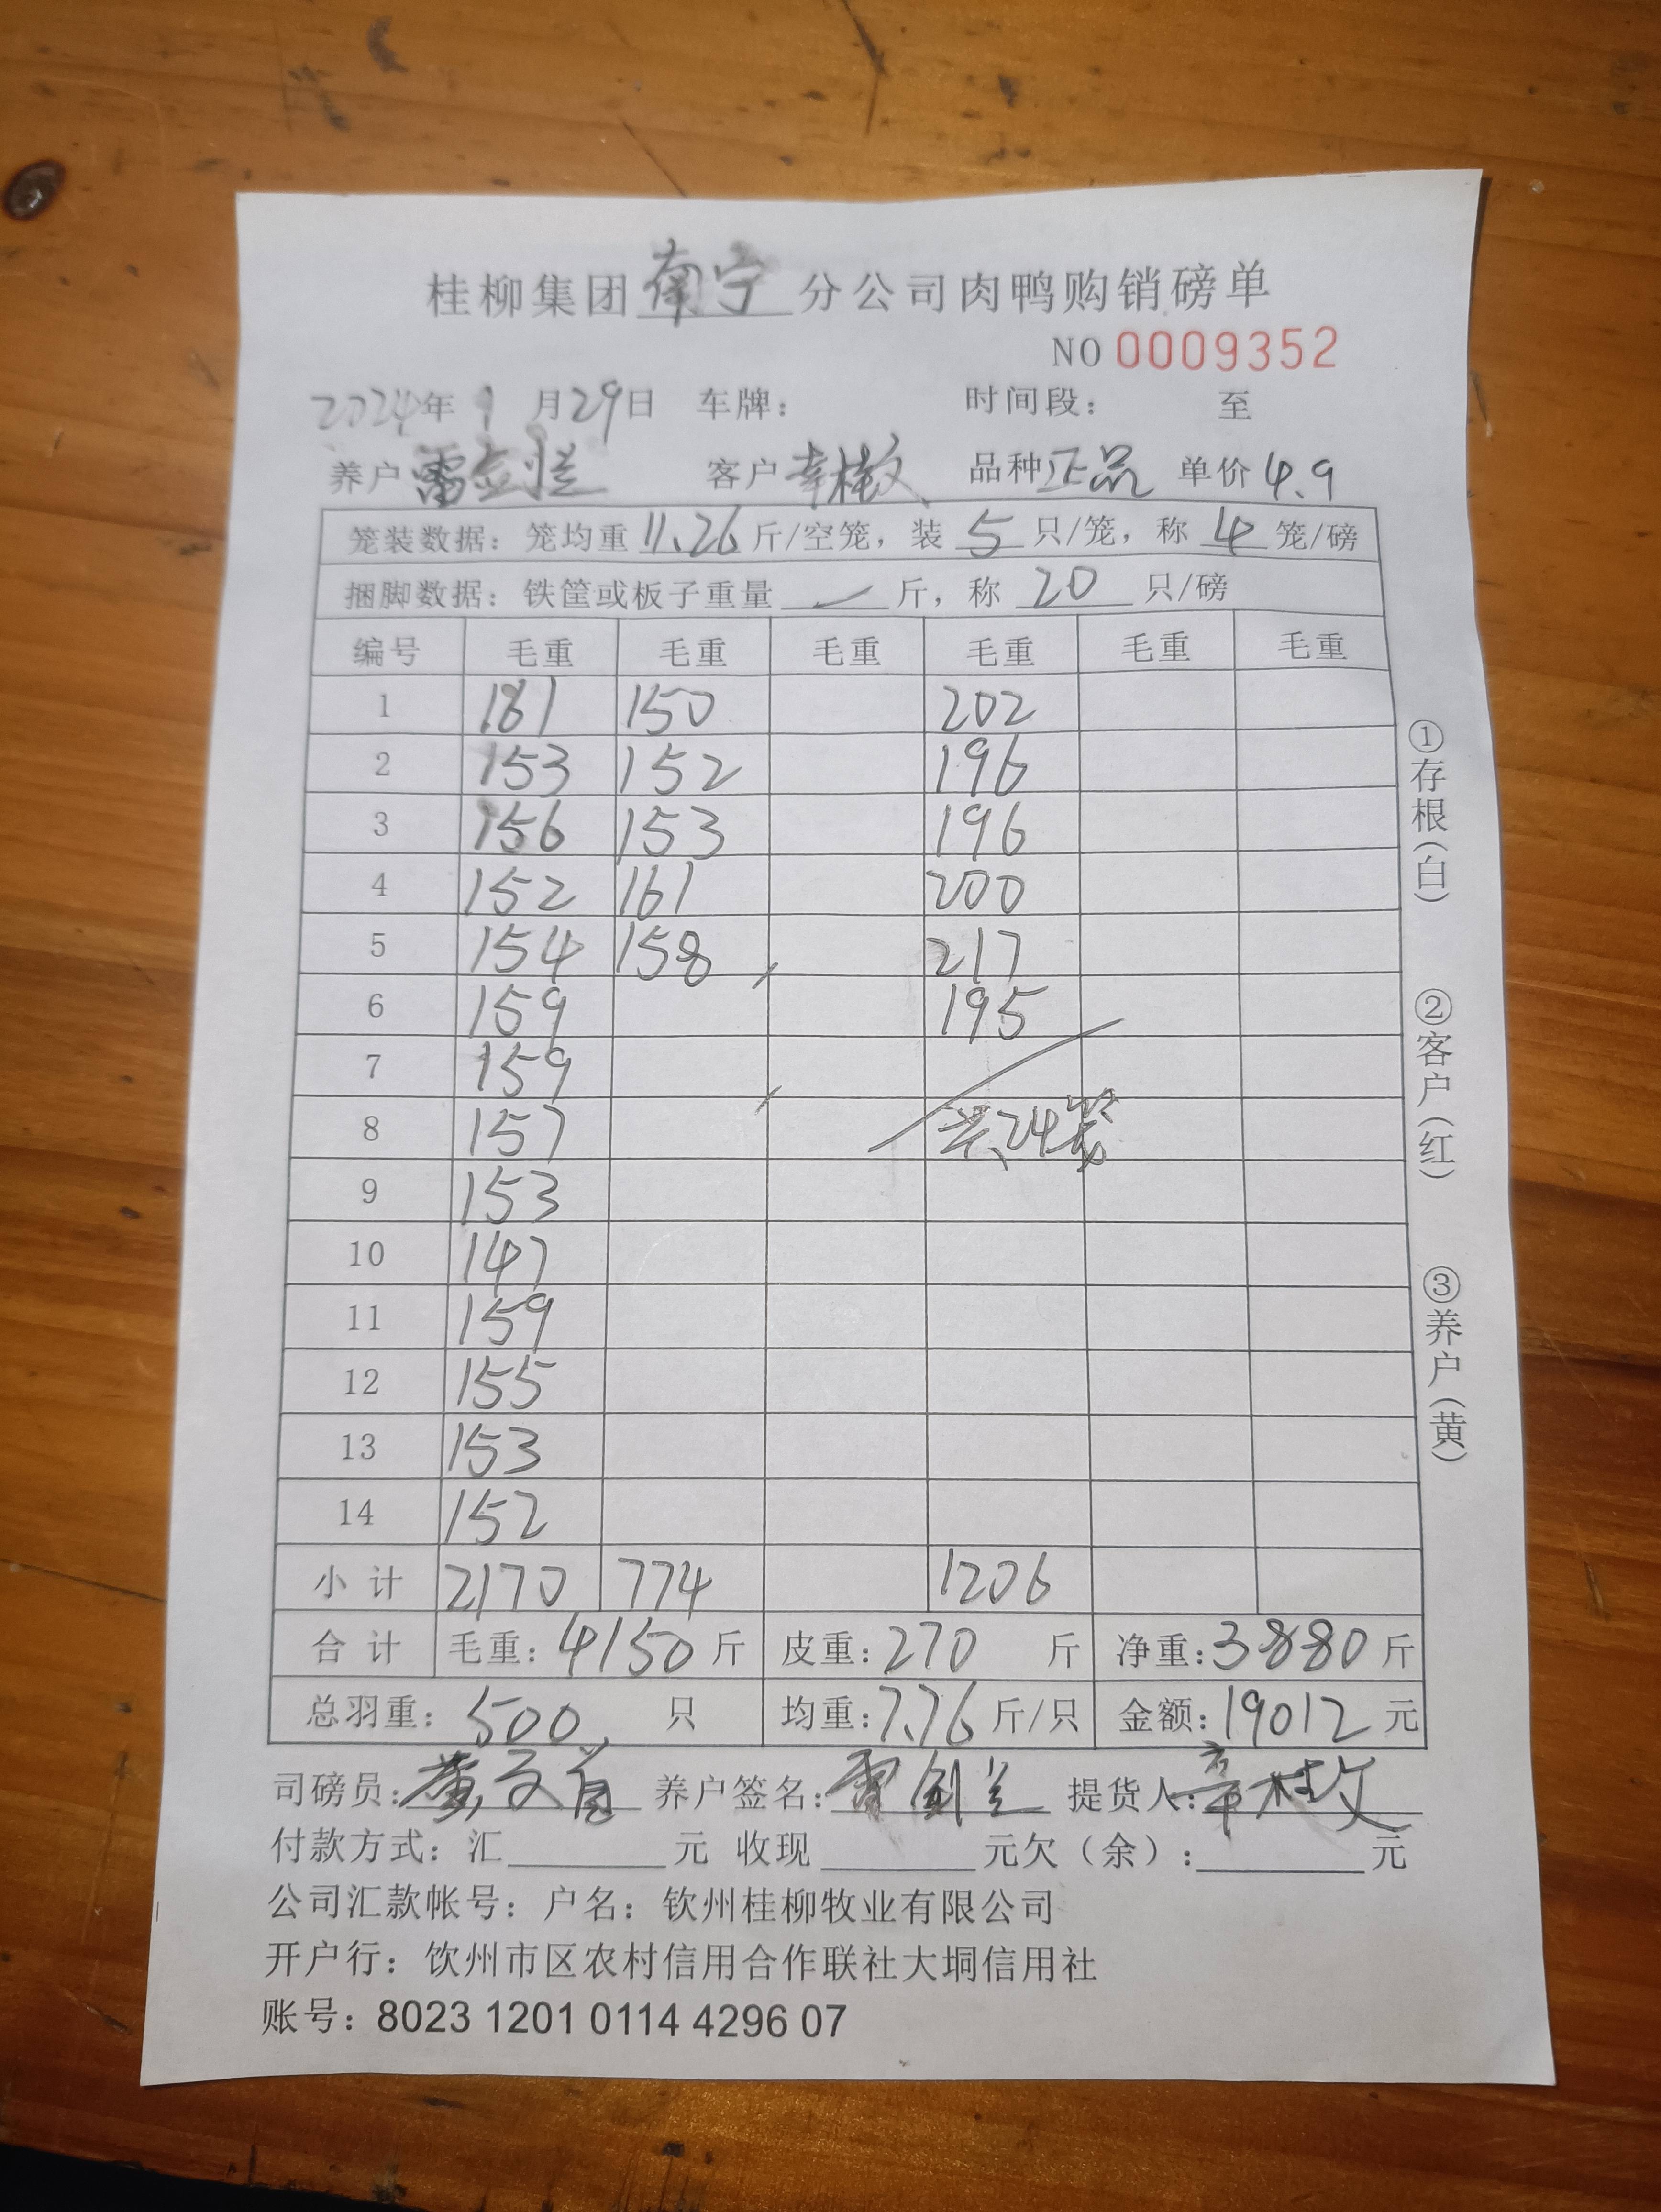 桂柳集团南宁分公司肉鸭购销磅单
NO 0009352
2024年9月29日 车牌： 时间段： 至
养户雷剑兰 客户 品种正品 单价4.9
笼装数据：笼均重11.26斤/空笼，装5只/笼，称4笼/磅
捆脚数据：铁筐或板子重量 斤，称20只/磅
编号 毛重 毛重 毛重 毛重 毛重 毛重
1 181 150 202
2 153 152 196
3 156 153 196
4 152 161 200
5 154 158 217
6 159 195
7 159
8 157 共24笼
9 153
10 147
11 159
12 155
13 153
14 152
小计 2170 774 1206
合计 毛重：4150斤 皮重：270 斤 净重：3880斤
总羽重：500 只 均重：7.76斤/只 金额：19012元
司磅员： 养户签名：雷剑兰 提货人：
付款方式：汇 元 收现 元欠（余）： 元
公司汇款帐号：户名：钦州桂柳牧业有限公司
开户行：饮州市区农村信用合作联社大垌信用社
账号：8023 1201 0114 4296 07
①存根（白）
②客户（红）
③养户（黄）